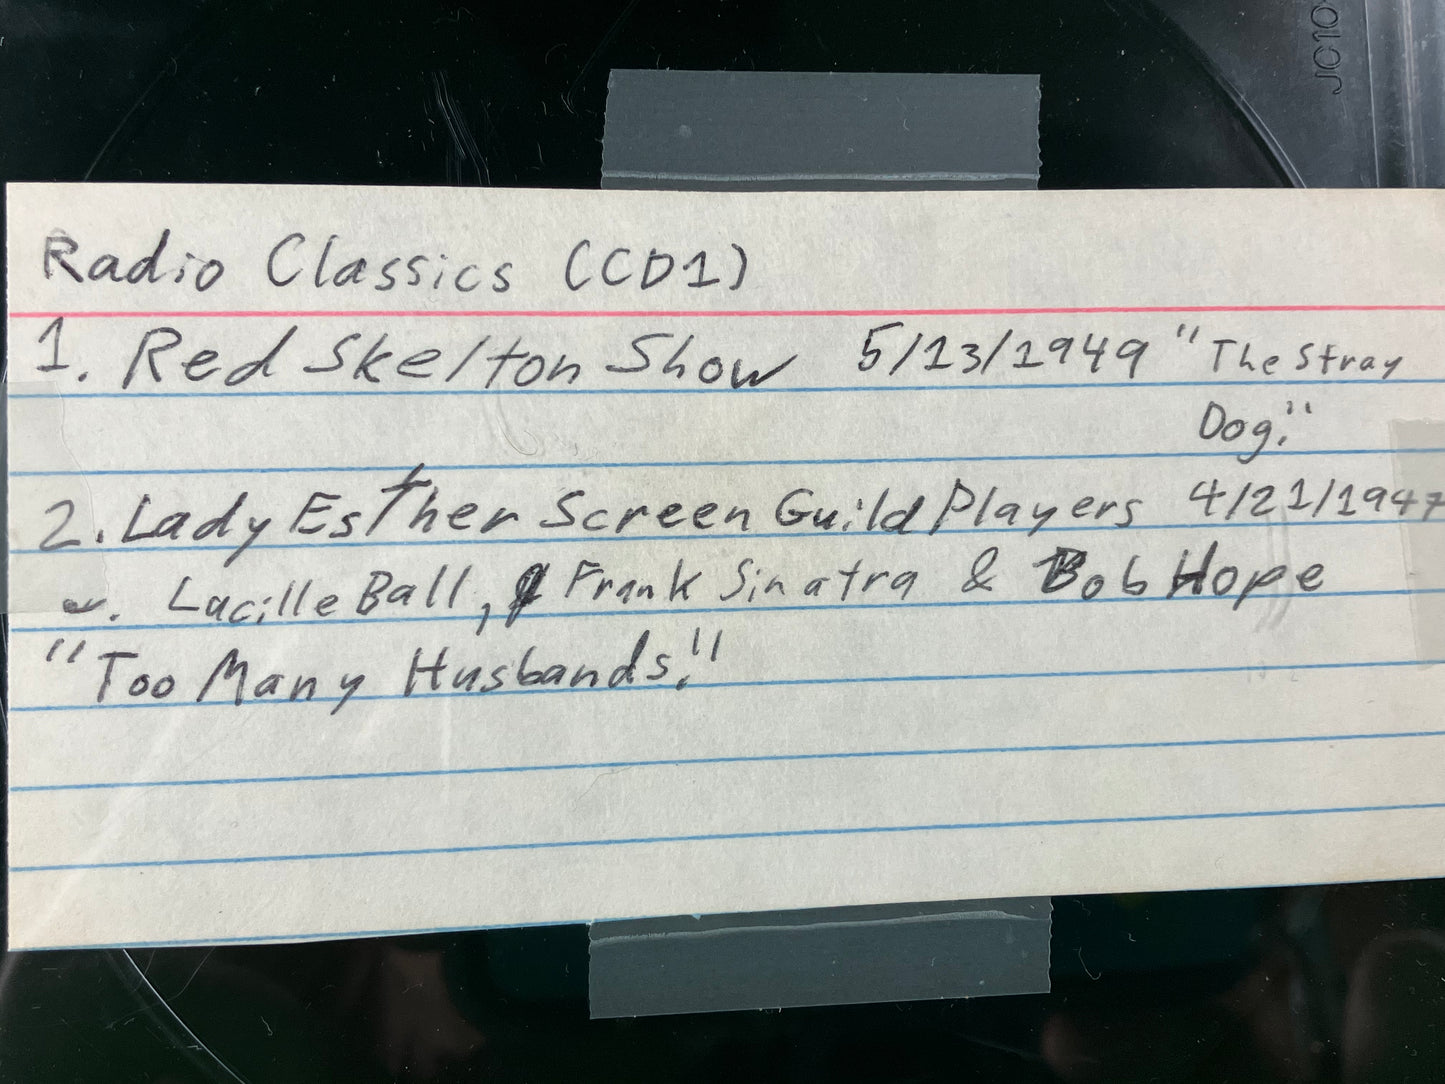 JC10
Radio Classics (CD1)
1. Red Skelton Show 5/13/1949 "The Stray
Dog."
2. Lady Esther Screen Guild Players 4/21/1947
w. Lucille Ball, Frank Sinatra & Bob Hope
"Too Many Husbands."